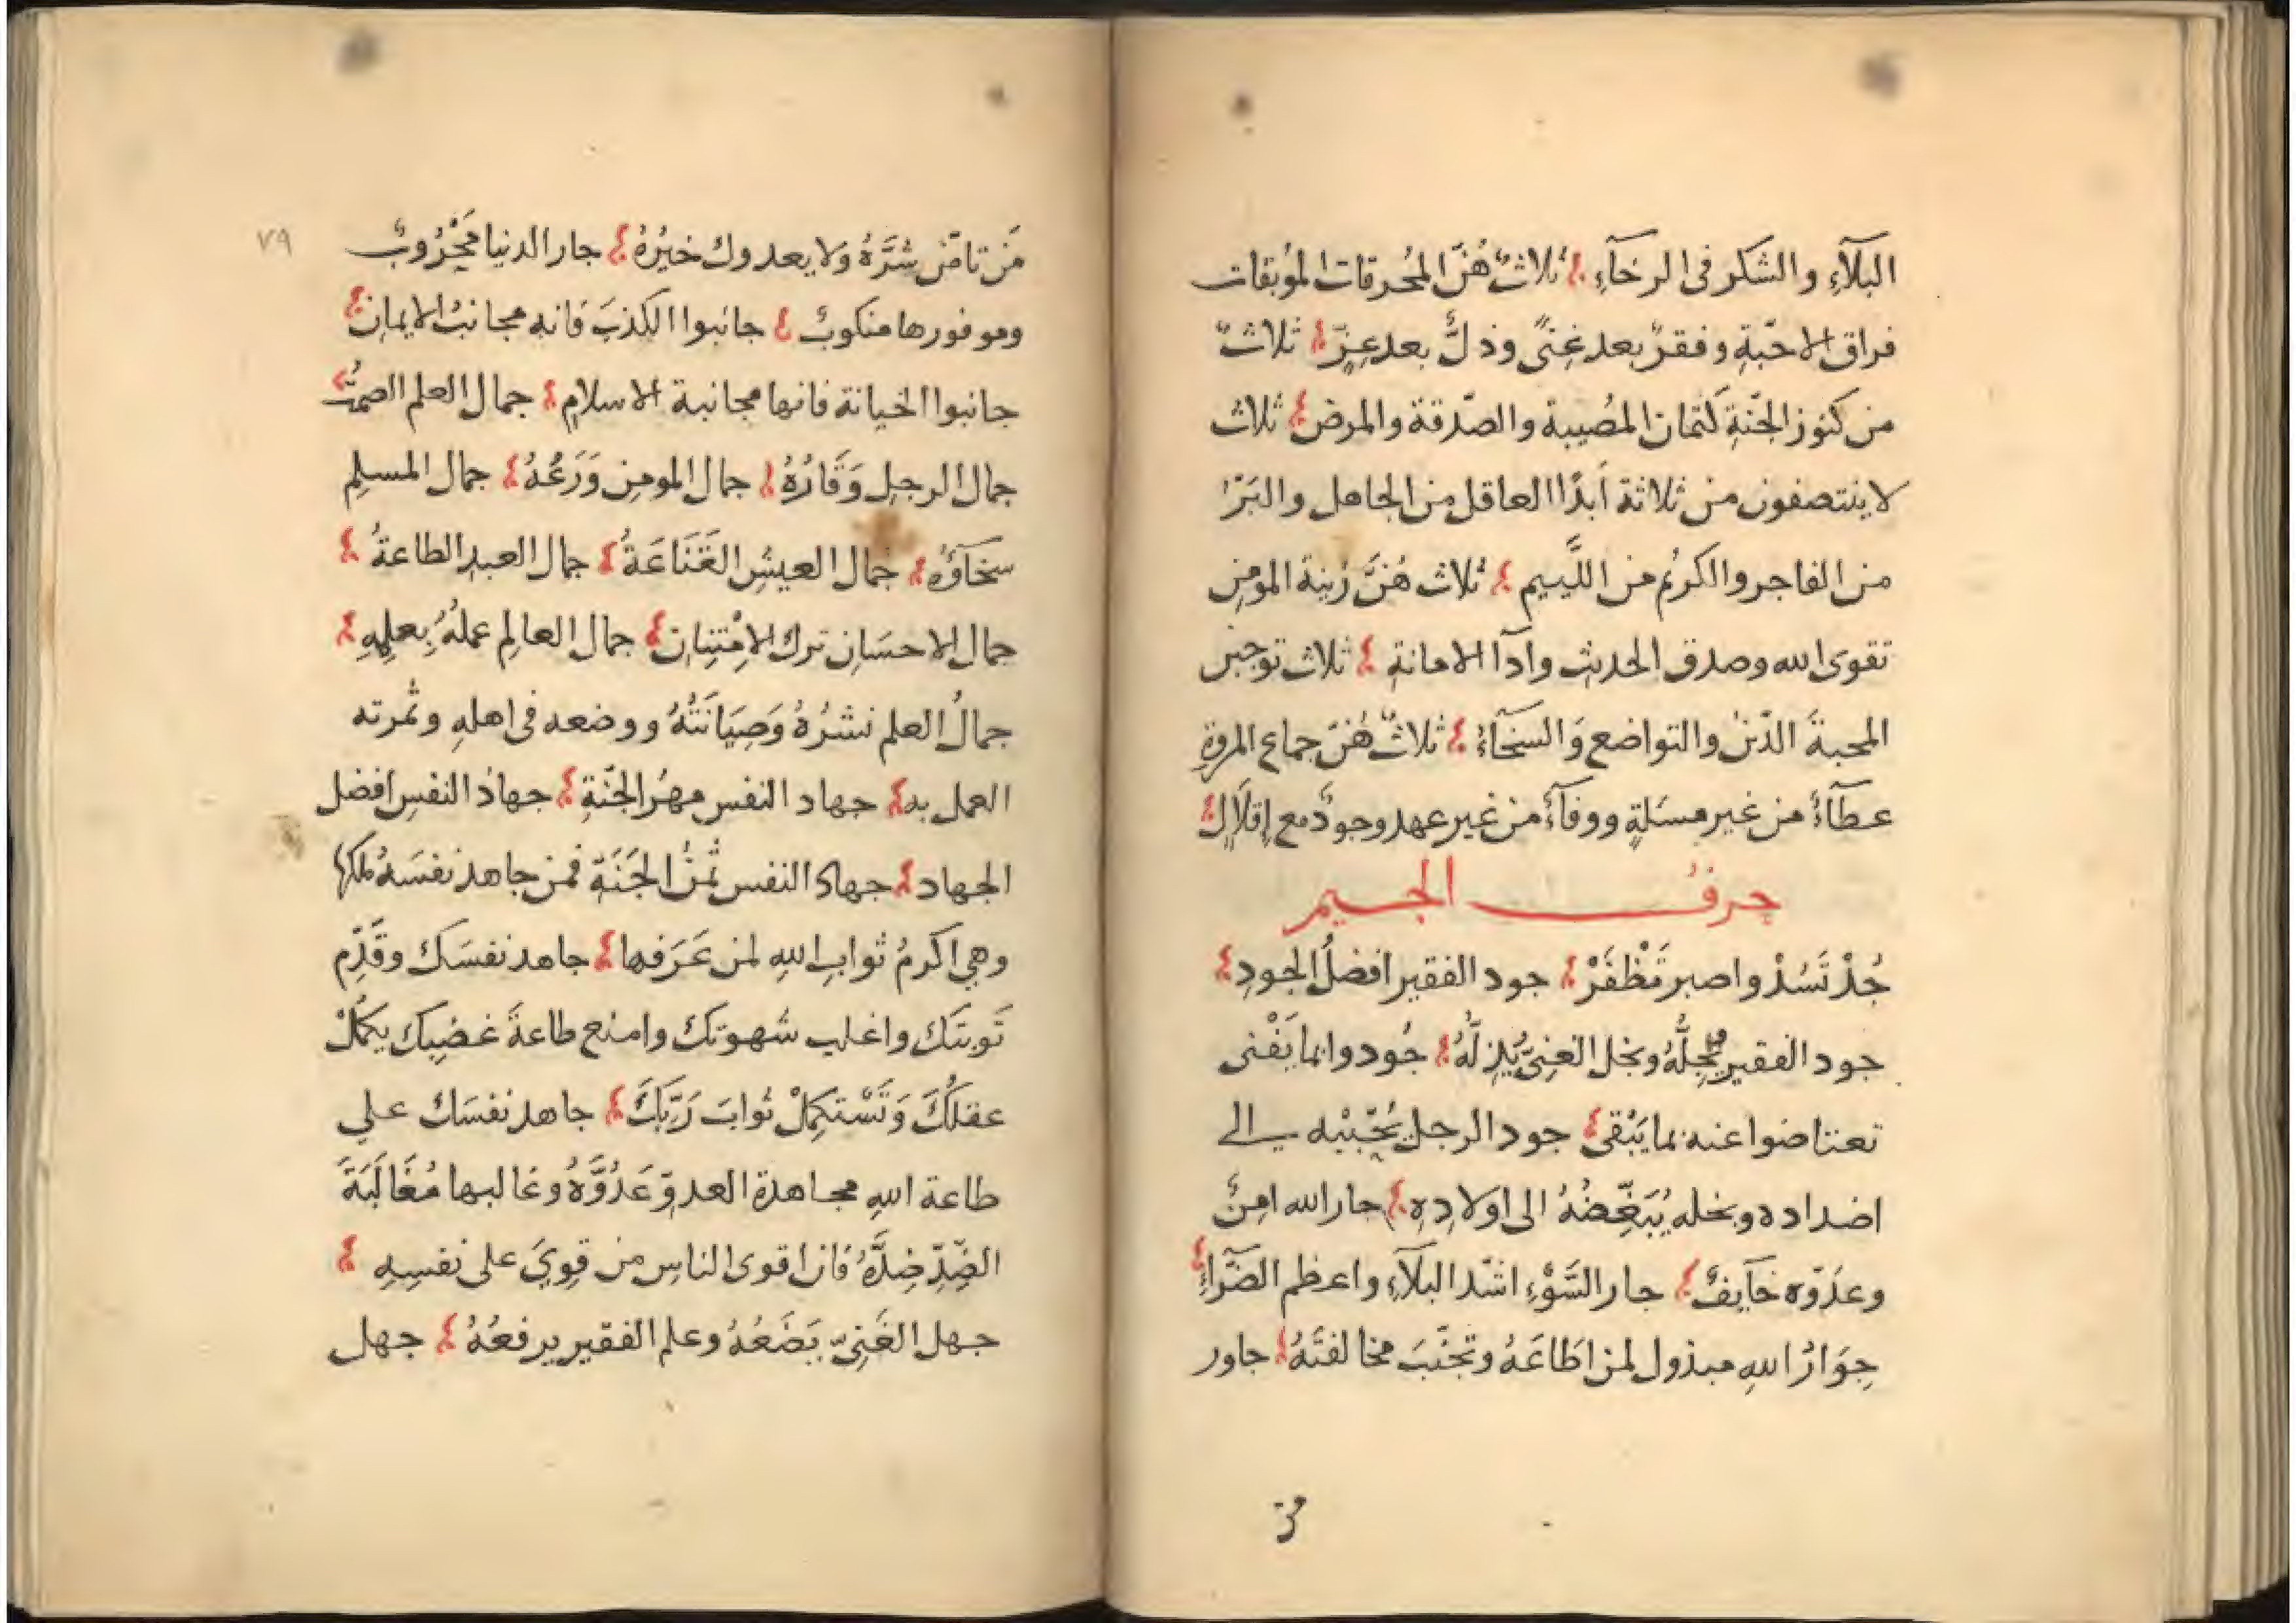 البَلآءِ والشكر فى الرخآءِ ثلاثٌ هُنّ المُحرقات المُوبقات
فراق الاحّبةِ وفقرٌ بعد غِنىً وذلٌّ بعد عِزٍّ ثلاثٌ
من كنوز الجّنةِ كتمان المُصيبة والصّدقة والمرض ثلاث
لا ينتصفون من ثلاثة أبدًا العاقل من الجاهل والبَرّ
من الفاجر والكريُم من اللَّييم ثلاث هُنَّ زينة المومِن
تقوى الله وصدق الحديث وادآ الامانةِ ثلاث توجبن
المحبةَ الدّين والتواضع وَالسخَآءُ ثلاثٌ هُنّ جماع المروةِ
عطآءٌ من غير مسَلةٍ ووفآءٌ من غير عهد وجودٌ مع إقلَالٍ
حرف الجيم
جُدْ تَسُدْ واصبر تَظْفَرْ جود الفقير افضلُ الجودِ
جود الفقير يُجِلُّهُ وبخل الغنِىّ يُذِلُّهُ جُودوا بما يَفْنى
تعتاضوا عنه بما يَبْقى جود الرجل يُحَبّبُه الى
اضداده وبخله يُبَغّضُهُ الى اولادِهِ جار الله امِنٌ
وعدَوّه خآيفٌ جار السَّوْءِ اشدّ البلآءِ واعظم الضَّرآءِ
جِوَارُ اللهِ مبذول لمن اطَاعَهُ وتجّنبَ مخالفتَهُ جاور
من
٧٩
مَن تامَن شَرَّهُ ولا يعدوك خيرُهُ جار الدنيا محْرُوبٌ
وموفورها منكوبٌ جانبوا الكذبَ فانه مجانبُ الايمانِ
جانبوا الخيانة فانها مجانبة الاسلامِ جمال العلم الصمْتُ
جمال الرجل وَقَارُهُ جمال المومِن وَرَعُهُ جمال المسلِم
سخَآؤُهُ جمال العيشِ القَنَاعَةُ جمال العبدِ الطاعةُ
جمال الاحسَانِ ترك الامْتِنانِ جمال العالِم عملهُ بِعلِمِهِ
جمالُ العلم نشرُهُ وَصِيَانَتُهُ ووضعه فى اهلهِ وثمرته
العمل به جهاد النفس مهرُ الجّنةِ جهادُ النفسِ افضل
الجهاد جهاد النفس ثمنُ الجَنَةِ فمن جاهد نفسَهُ ملكها
وهى اكرمُ ثوابِ اللهِ لمن عَرَفها جاهد نفسَك وقَدِّم
تَوبتَك واغلب شهوتك وامنع طاعةَ غضبِك يكمُلْ
عقلُكَ وَتَسْتكمِلْ ثوابَ رَبّكَ جاهد نفسَك على
طاعة اللهِ مجاهدة العدوّ عَدُوَّهُ وغالبها مُغَالَبَةَ
الضِّدِّ ضِدَّهُ فان اقوى الناسِ من قوِيَ على نفسِهِ
جهل الغَنِىّ يَضَعُهُ وعلم الفقير يرفعُهُ جهل